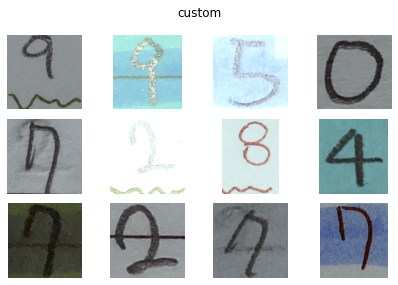 custom
9 9 5 0
7 2 8 4
7 2 7 7